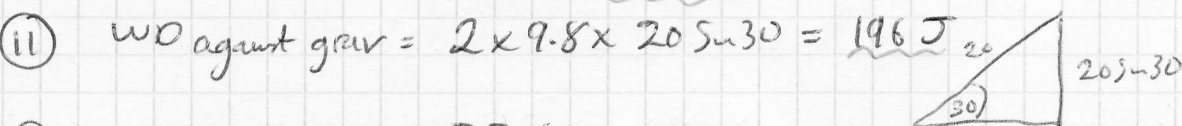 (ii) WD against grav = 2 × 9.8 × 20 Sin 30 = 196 J
20
20 Sin 30
30